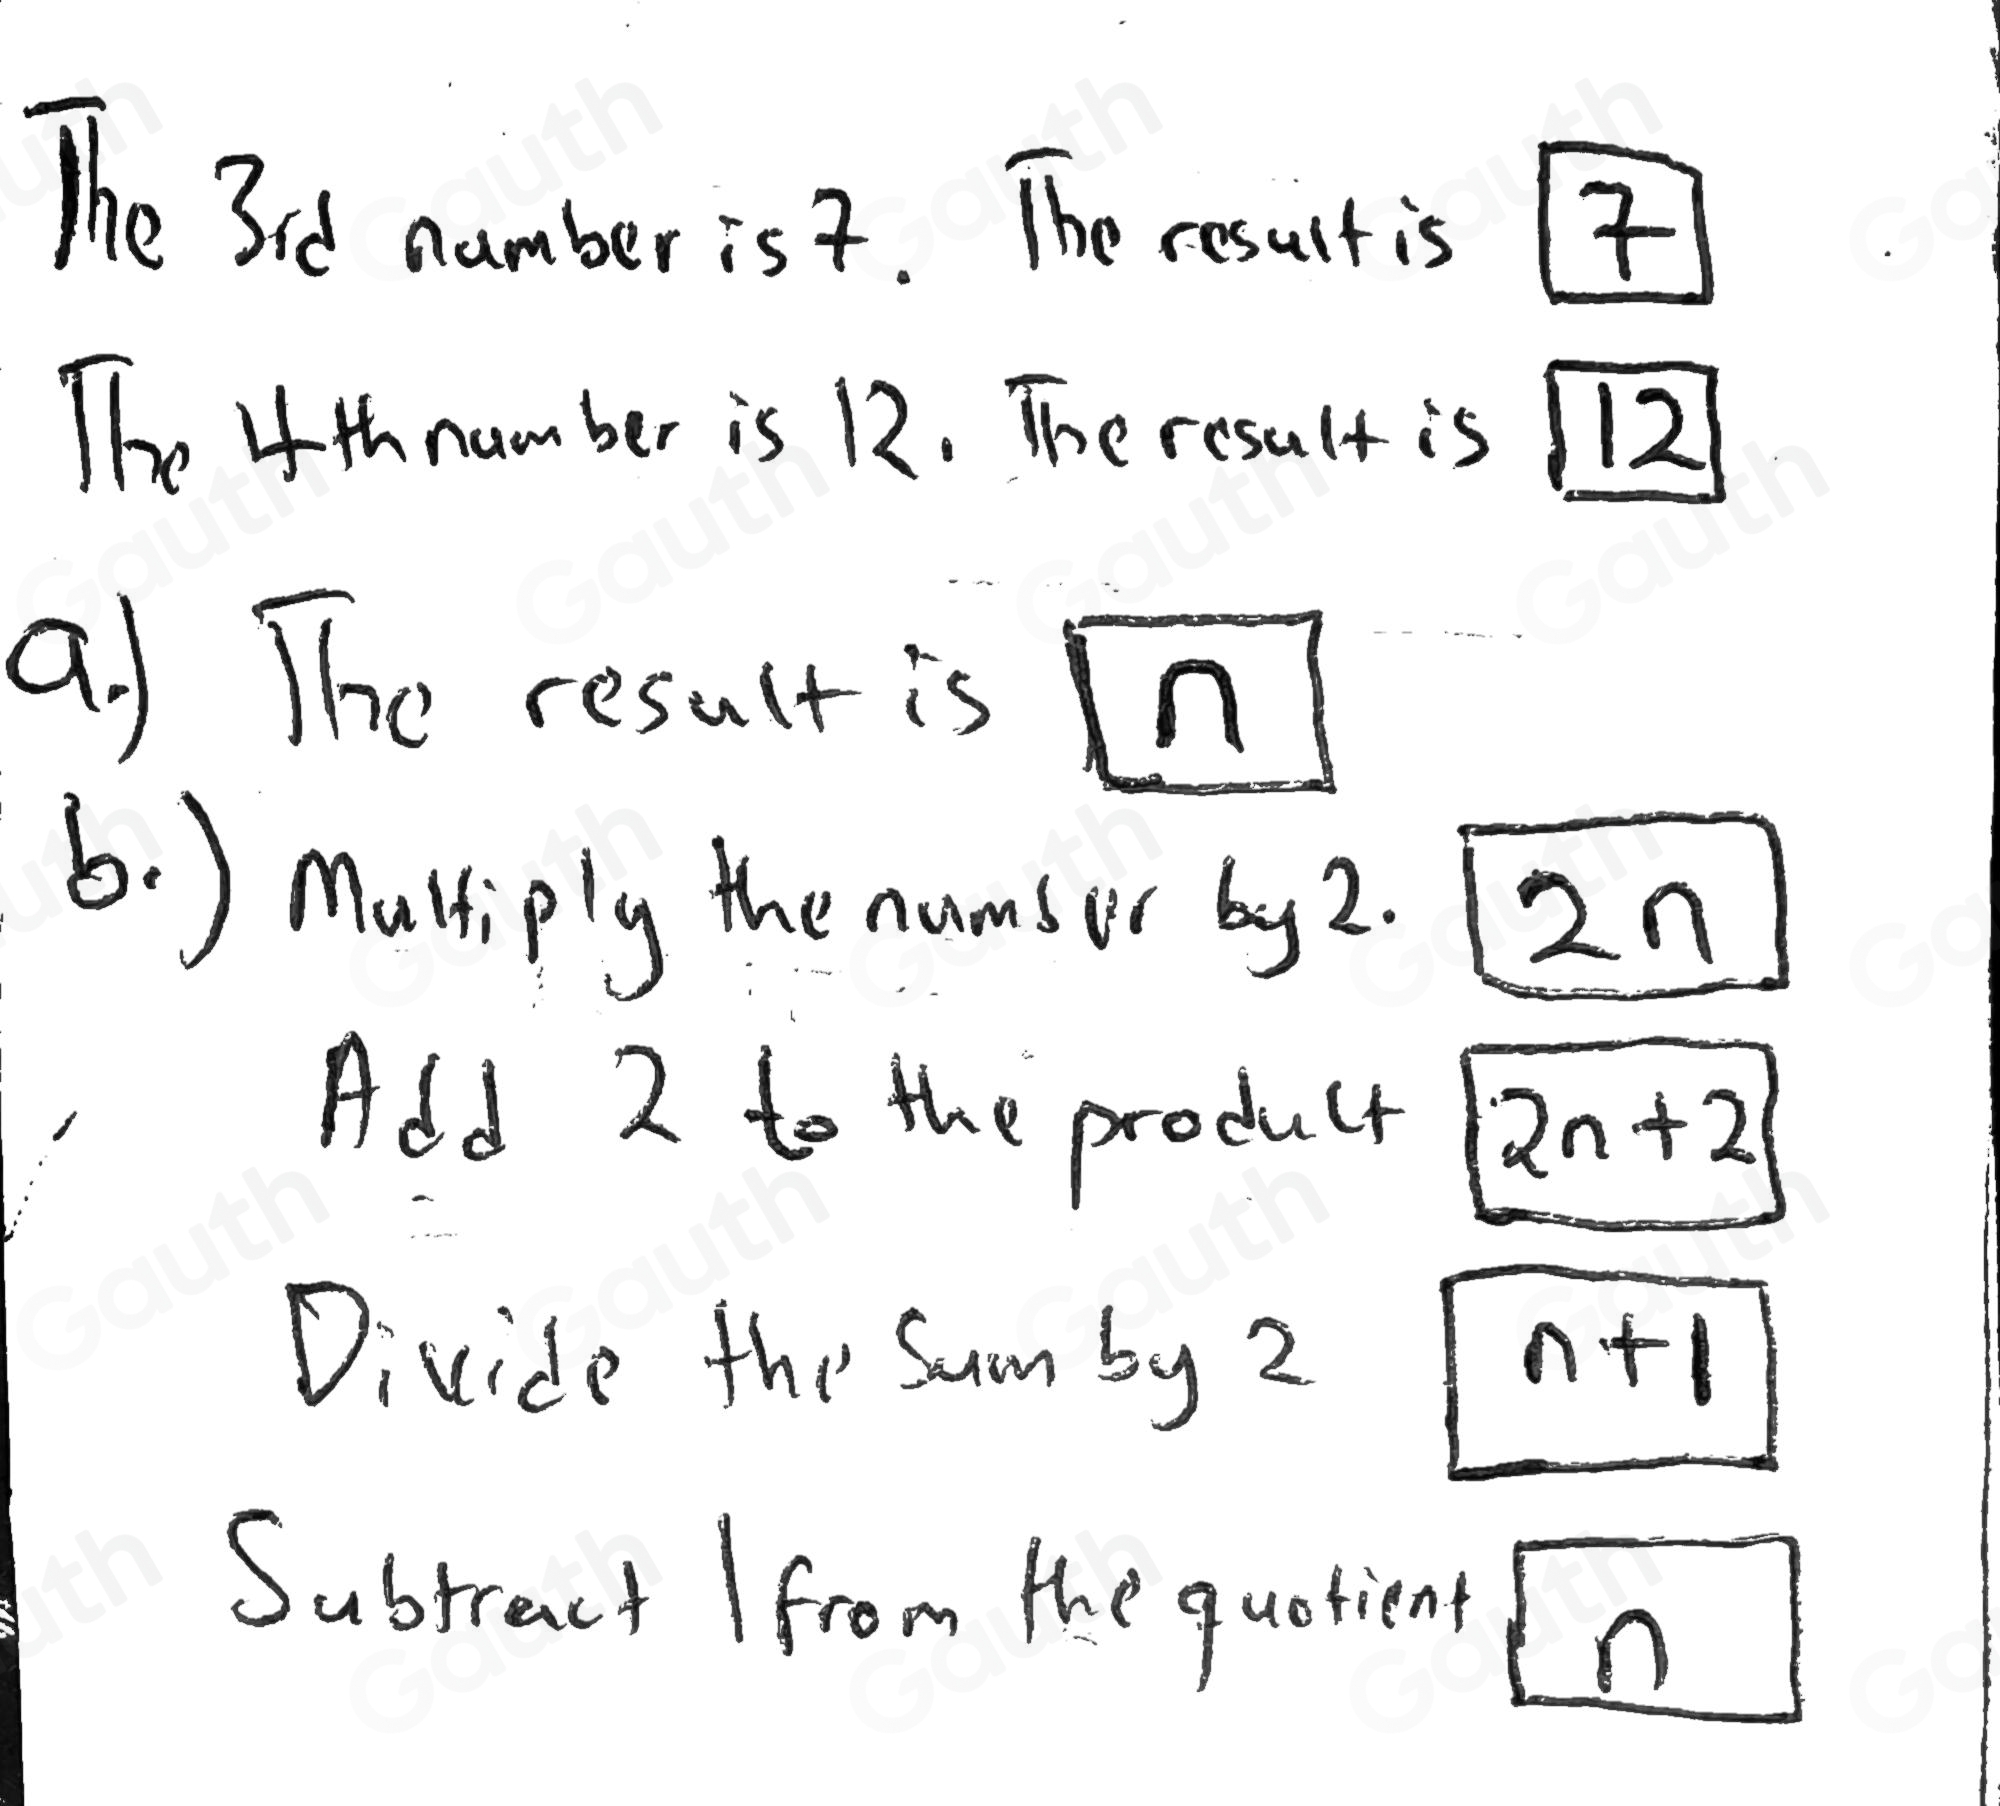 The 3rd number is 7. The result is 7
The 4th number is 12. The result is 12
a.) The result is n
b.) Multiply the number by 2. 2n
Add 2 to the product 2n+2
Divide the sum by 2 n+1
Subtract 1 from the quotient n